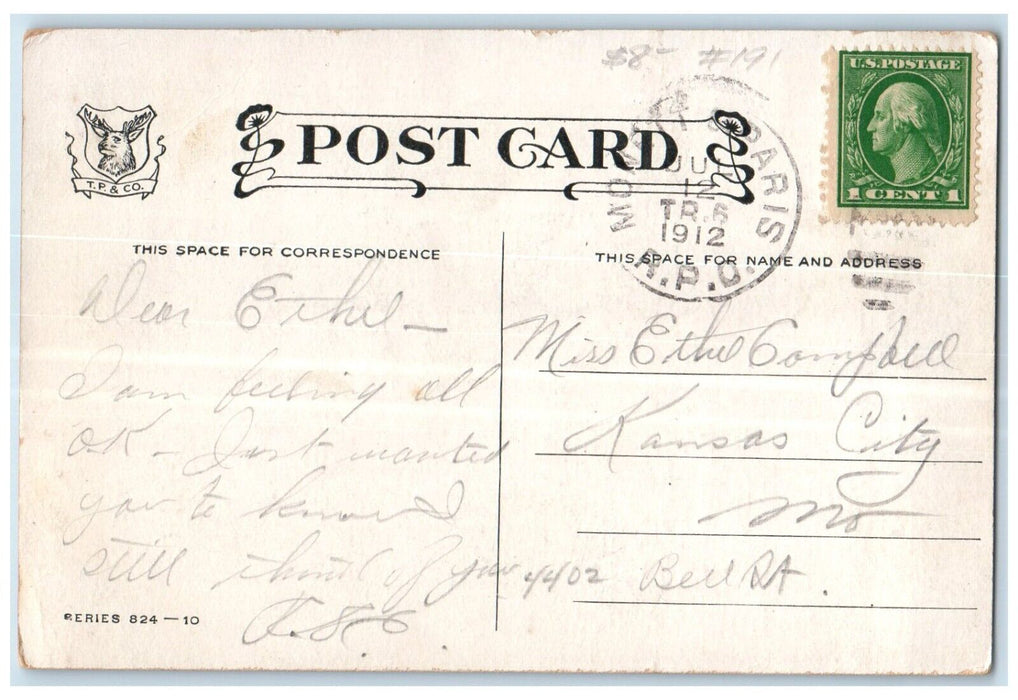 $8- #191
U.S. POSTAGE
1 CENT 1
POST CARD
T. P. & CO.
& PARIS
12
TR. 6
1912
R.P.O.
THIS SPACE FOR CORRESPONDENCE
THIS SPACE FOR NAME AND ADDRESS
Dear Ethel —
I am feeling all
OK — Just wanted
you to know I
still think of you
Miss Ethel Campbell
Kansas City
Mo
4402 Bell St.
SERIES 824 — 10